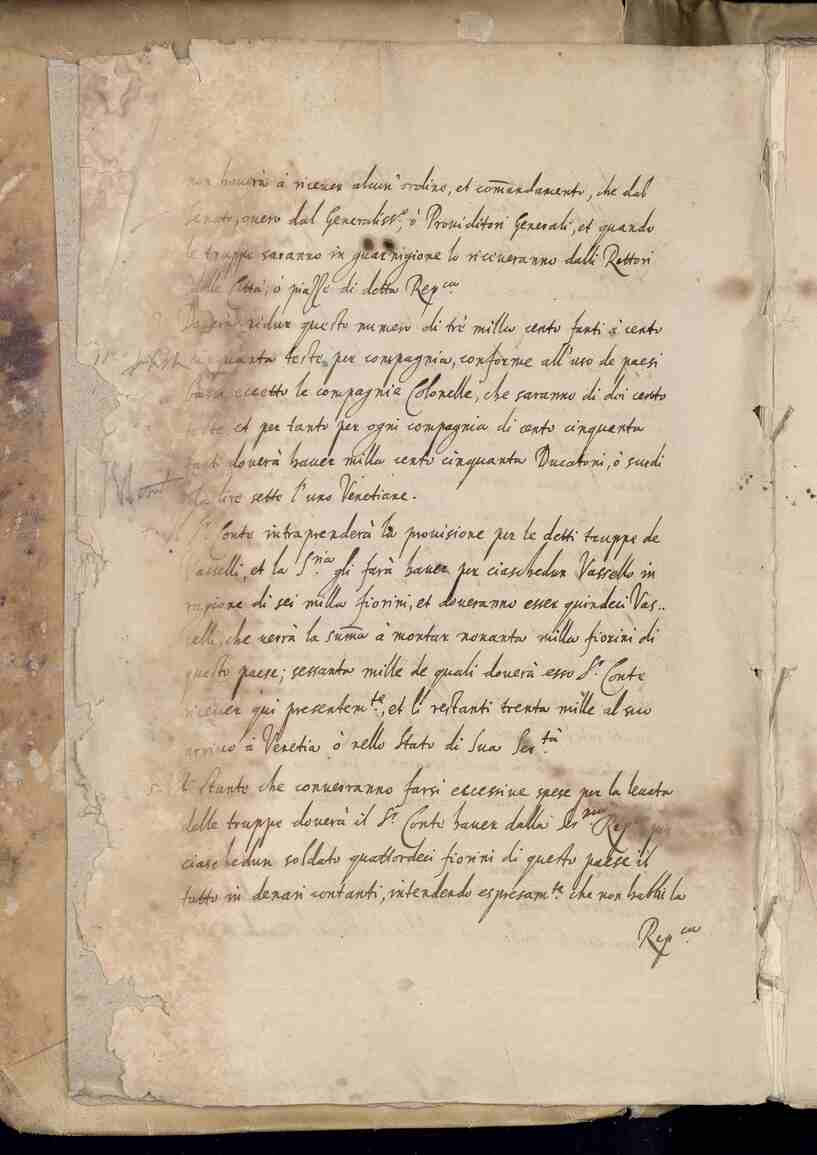 non hauerà à riceuer alcun' ordine, et com̃andamento, che dal
Senato, ouero dal Generaliss.º, ò Proueditori Generali, et quando
le truppe saranno in guarnigione lo riceueranno dalli Rettori
delle Città, ò piazze di detta Rep.ca
ridur questo numero di trè milla cento fanti à cento
cinquanta teste per compagnia, conforme all'uso de paesi
eccetto le compagnie Colonelle, che saranno di doi cento
teste et per tanto per ogni compagnia di cento cinquanta
fanti douerà hauer milla cento cinquanta Ducatoni, ò scudi
da lire sette l'uno Venetiane.
Il S.r Conte intraprenderà la prouisione per le detti truppe de
Vasselli, et la S.ria gli farà hauer per ciaschedun Vassello in
ragione di sei milla fiorini, et doueranno esser quindeci Vas..
selli, che uerrà la sum̃a à montar nonanta milla fiorini di
questo paese; sessanta mille de quali douerà esso S.r Conte
riceuer qui presentem.te, et li restanti trenta mille al suo
arriuo à Venetia ò nello Stato di Sua Ser.tà
5. Et stante che conuerranno farsi eccessiue spese per la leuata
delle truppe douerà il S.r Conte hauer dalla Ser.ma Rep.ca per
ciaschedun soldato quattordeci fiorini di questo paese il
tutto in denari contanti, intendendo espresam.te che non habbi la
Rep.ca